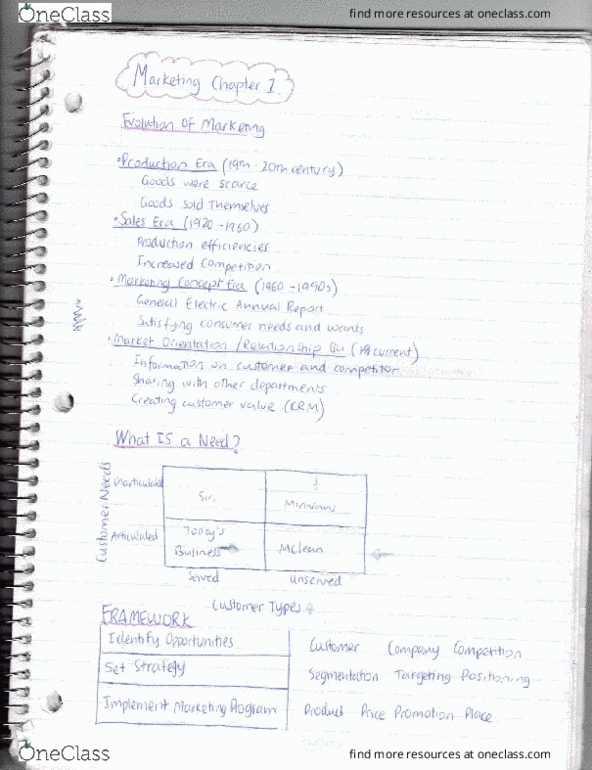 OneClass
find more resources at oneclass.com
Marketing Chapter 1
Evolution of Marketing
• Production Era (19th - 20th century)
Goods were scarce
Goods sold themselves
• Sales Era (1920 - 1960)
Production efficiencies
Increased Competition
• Marketing Concept Era (1960 - 1990s)
General Electric Annual Report
Satisfying consumer needs and wants
• Market Orientation / Relationship Era (current)
Information on customer and competitor
Sharing with other departments
Creating customer value (CRM)
What IS a Need?
Customer Needs
Unarticulated
Siri
Minivans
Articulated
Today's
Business
McLean
Served
Unserved
Customer Types
FRAMEWORK
Identify Opportunities
Customer Company Competition
Set Strategy
Segmentation Targeting Positioning
Implement Marketing Program
Product Price Promotion Place
OneClass
find more resources at oneclass.com